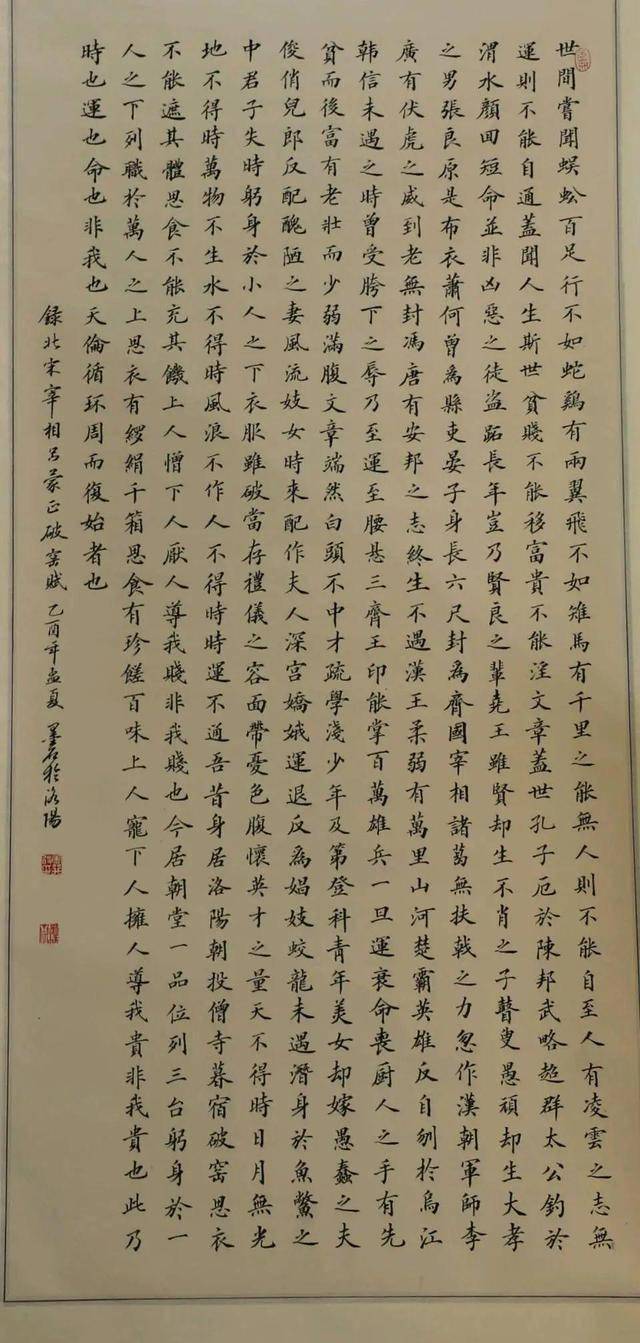 世間嘗聞蜈蚣百足行不如蛇鷄有兩翼飛不如雉馬有千里之能無人則不能自至人有凌雲之志無
運則不能自通蓋聞人生斯世貧賤不能移富貴不能淫文章蓋世孔子厄於陳邦武略超群太公釣於
渭水顏回短命並非凶惡之徒盜跖長年豈乃賢良之輩堯王雖賢却生不肖之子瞽叟愚頑却生大孝
之男張良原是布衣蕭何曾為縣吏晏子身長六尺封為齊國宰相諸葛無扶戟之力忽作漢朝軍師李
廣有伏虎之威到老無封馮唐有安邦之志終生不遇漢王柔弱有萬里山河楚霸英雄反自刎於烏江
韓信未遇之時曾受胯下之辱乃至運至腰悬三齊王印能掌百萬雄兵一旦運衰命喪厨人之手有先
貧而後富有老壯而少弱滿腹文章端然白頭不中才疏學淺少年及第登科青年美女却嫁愚蠢之夫
俊俏兒郎反配醜陋之妻風流妓女時來配作夫人深宮嬌娥運退反為娼妓蛟龍未遇潛身於魚鱉之
中君子失時躬身於小人之下衣服雖破當存禮儀之容面帶憂色腹懷英才之量天不得時日月無光
地不得時萬物不生水不得時風浪不作人不得時時運不通吾昔身居洛陽朝投僧寺暮宿破窑思衣
不能遮其體思食不能充其饑上人憎下人厭人導我賤非我賤也今居朝堂一品位列三台躬身於一
人之下列職於萬人之上思衣有綾絹千箱思食有珍饈百味上人寵下人擁人導我貴非我貴也此乃
時也運也命也非我也天倫循环周而復始者也
錄北宋宰相呂蒙正破窑賦 乙酉年孟夏 於洛陽